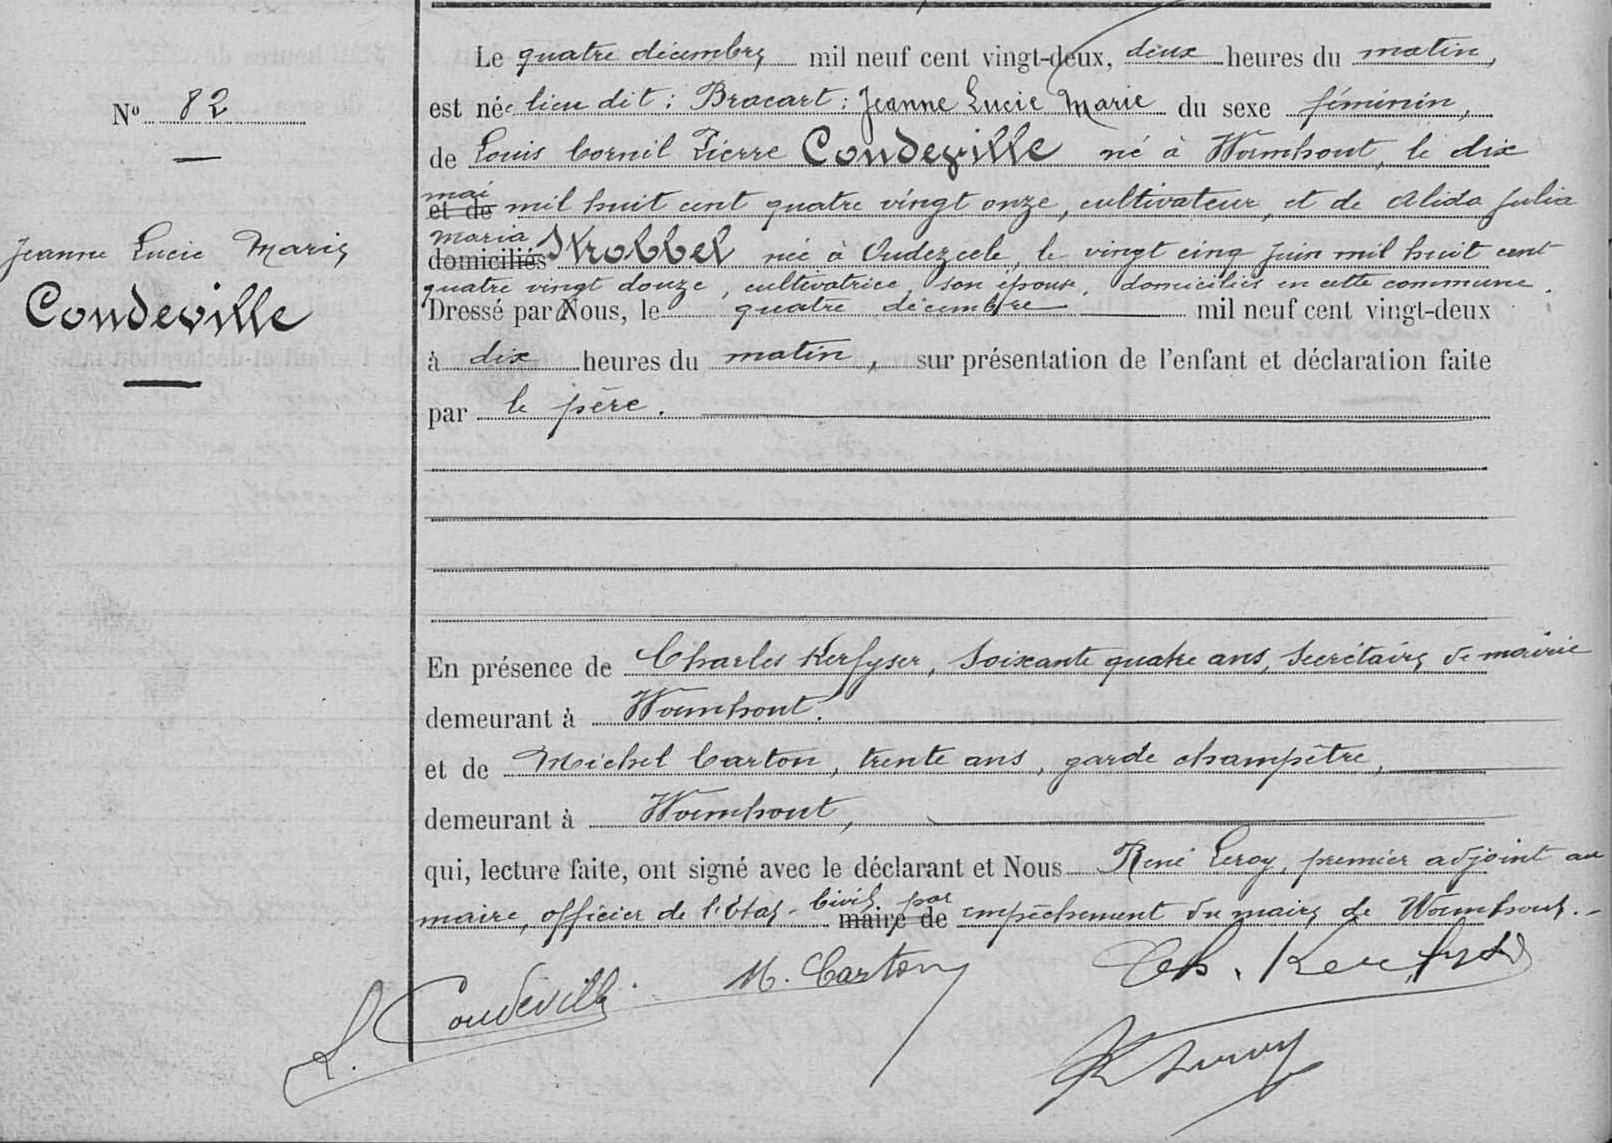 N° 82
Jeanne Lucie Marie
Condeville
Le quatre décembre mil neuf cent vingt-deux, deux heures du matin,
est née lieu dit : Bracart : Jeanne Lucie Marie du sexe féminin,
de Louis Cornil Pierre Condeville né à Wormhout, le dix
mai
et de mil huit cent quatre vingt onze, cultivateur, et de Alida Julia
Maria
domiciliés Strobbel née à Oudezeele, le vingt cinq juin mil huit cent
quatre vingt douze, cultivatrice, son épouse, domiciliés en cette commune.
Dressé par Nous, le quatre décembre mil neuf cent vingt-deux
à dix heures du matin, sur présentation de l'enfant et déclaration faite
par le père.
En présence de Charles Kerfyser, soixante quatre ans, secrétaire de mairie
demeurant à Wormhout.
et de Michel Carton, trente ans, garde champêtre,
demeurant à Wormhout,
qui, lecture faite, ont signé avec le déclarant et Nous René Leroy, premier adjoint au
maire, officier de l'Etat-Civil par maire de empêchement du maire de Wormhout.-
L. Condeville. M. Carton Ch. Kerfyser
R Leroy